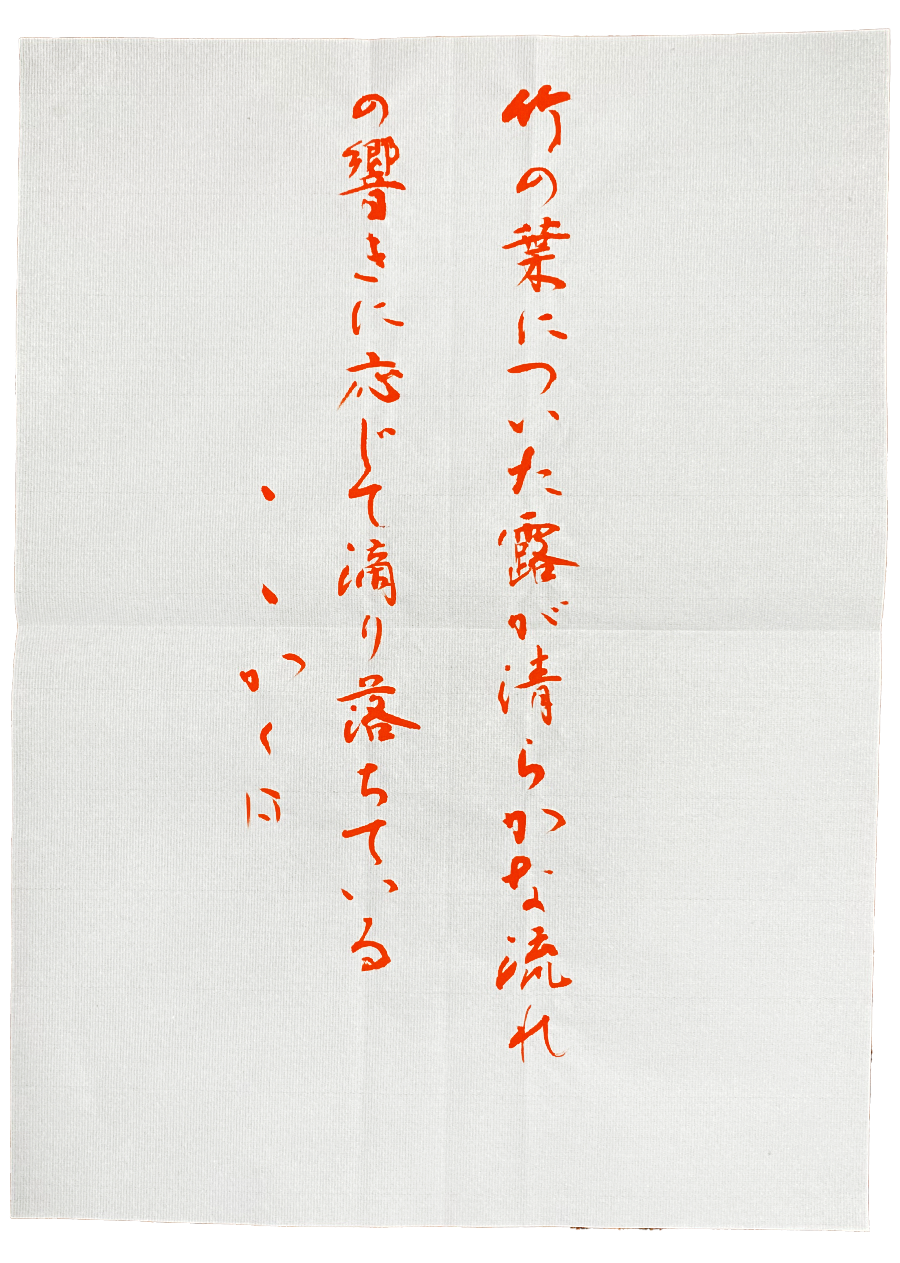 竹の葉についた露が清らかな流れ
の響きに応じて滴り落ちている